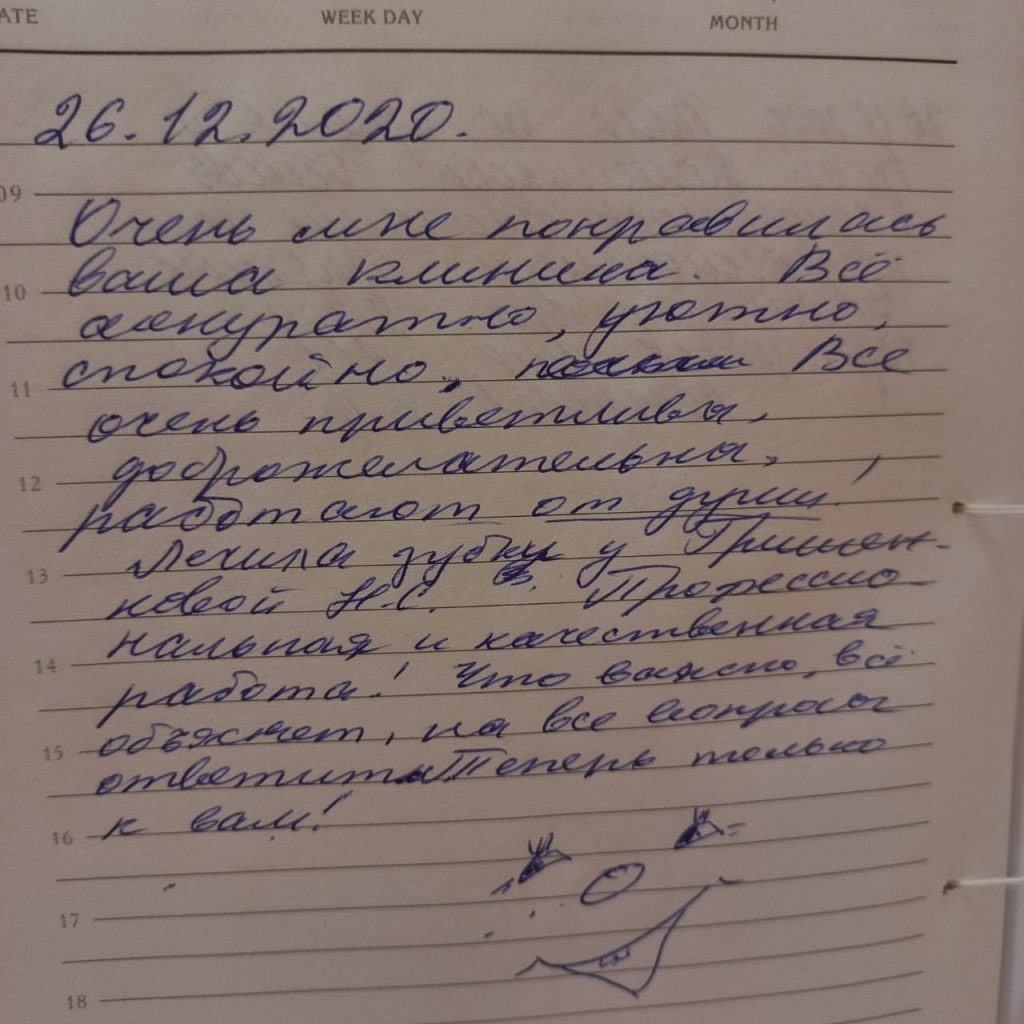 ATE WEEK DAY MONTH
26.12.2020.
09
Очень мне понравилась
10 ваша клиника. Всё
аккуратно, уютно,
11 спокойно, Все
очень приветливы,
12 доброжелательны,
работают от души!
13 Лечила зубки у Гришен-
ковой Н.С. Профессио-
14 нальная и качественная
работа! Что важно, всё
15 объяснет, на все вопросы
ответит. Теперь только
16 к вам!
17
18